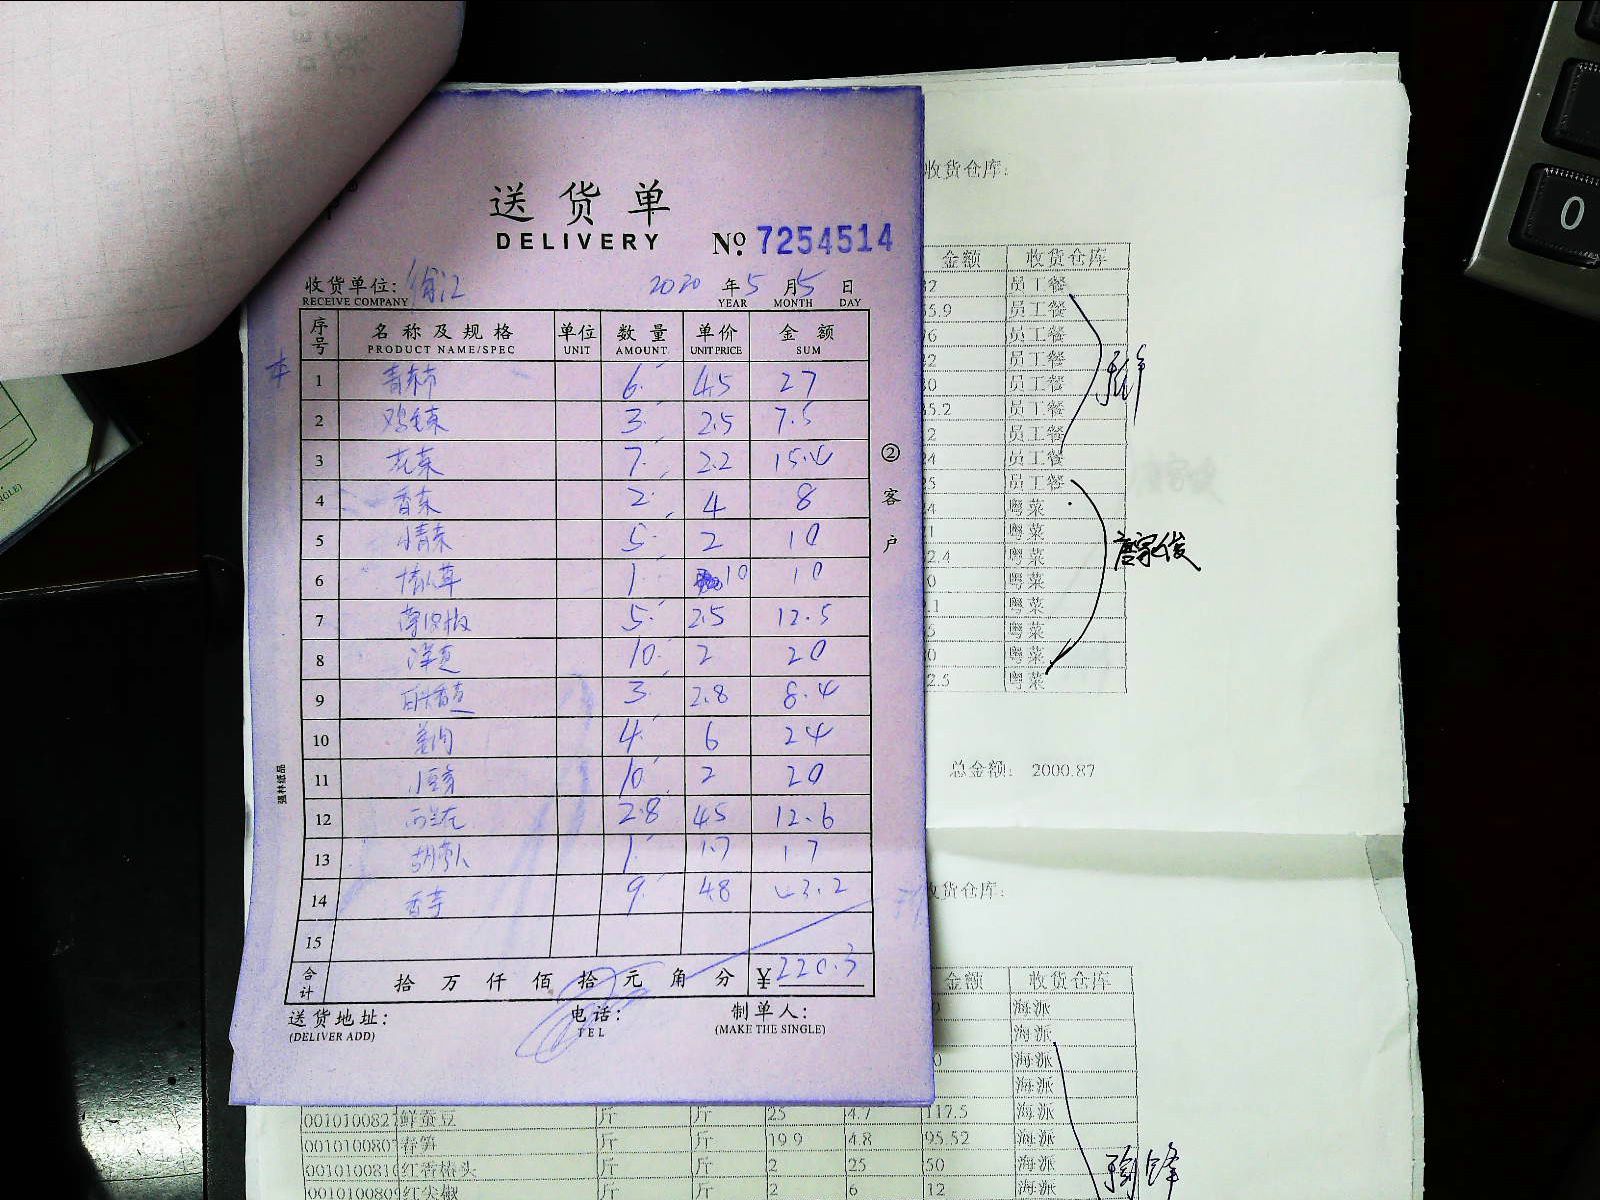 送货单
DELIVERY
No. 7254514
收货单位: 徐汇 2020 年 5 月 5 日
RECEIVE COMPANY YEAR MONTH DAY
序号 名称及规格 单位 数量 单价 金额
PRODUCT NAME/SPEC UNIT AMOUNT UNIT PRICE SUM
1 6 4.5 27
2 鸡毛菜 3 2.5 7.5
3 花菜 7 2.2 15.4
4 香菜 2 4 8
5 小青菜 5 2 10
6 1 10 10
7 薄皮椒 5 2.5 12.5
8 洋葱 10 2 20
9 3 2.8 8.4
10 姜肉 4 6 24
11 小豆芽 10 2 20
12 西兰花 2.8 4.5 12.6
13 胡萝卜 1 1.7 1.7
14 香芋 9 4.8 43.2
15
合计 拾 万 仟 佰 拾 元 角 分 ¥220.3
送货地址: 电话: 制单人:
(DELIVER ADD) TEL (MAKE THE SINGLE)
②客户
强林纸品
收货仓库:
金额 收货仓库
员工餐
5.9 员工餐
员工餐
员工餐
员工餐
5.2 员工餐
员工餐
员工餐
员工餐
粤菜
粤菜
2.4 粤菜
粤菜
.1 粤菜
粤菜
粤菜
2.5 粤菜
唐家俊
总金额: 2000.87
收货仓库:
金额 收货仓库
海派
海派
海派
海派
001010082 鲜蚕豆 斤 斤 25 4.7 117.5 海派
001010080 春笋 斤 斤 19.9 4.8 95.52 海派
001010081 红香椿头 斤 斤 2 25 50 海派
001010080 红尖椒 斤 斤 2 6 12 海派
0